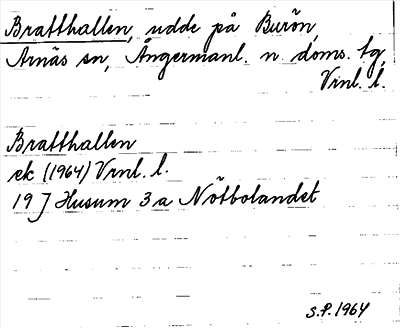 Bratthallen, udde på Burön,
Arnäs sn, Ångermanl. n. doms. tg,
Vrnl. l.
Bratthallen
ek (1964) Vrnl. l.
19 J Husum 3 a Nötbolandet
S.P. 1964